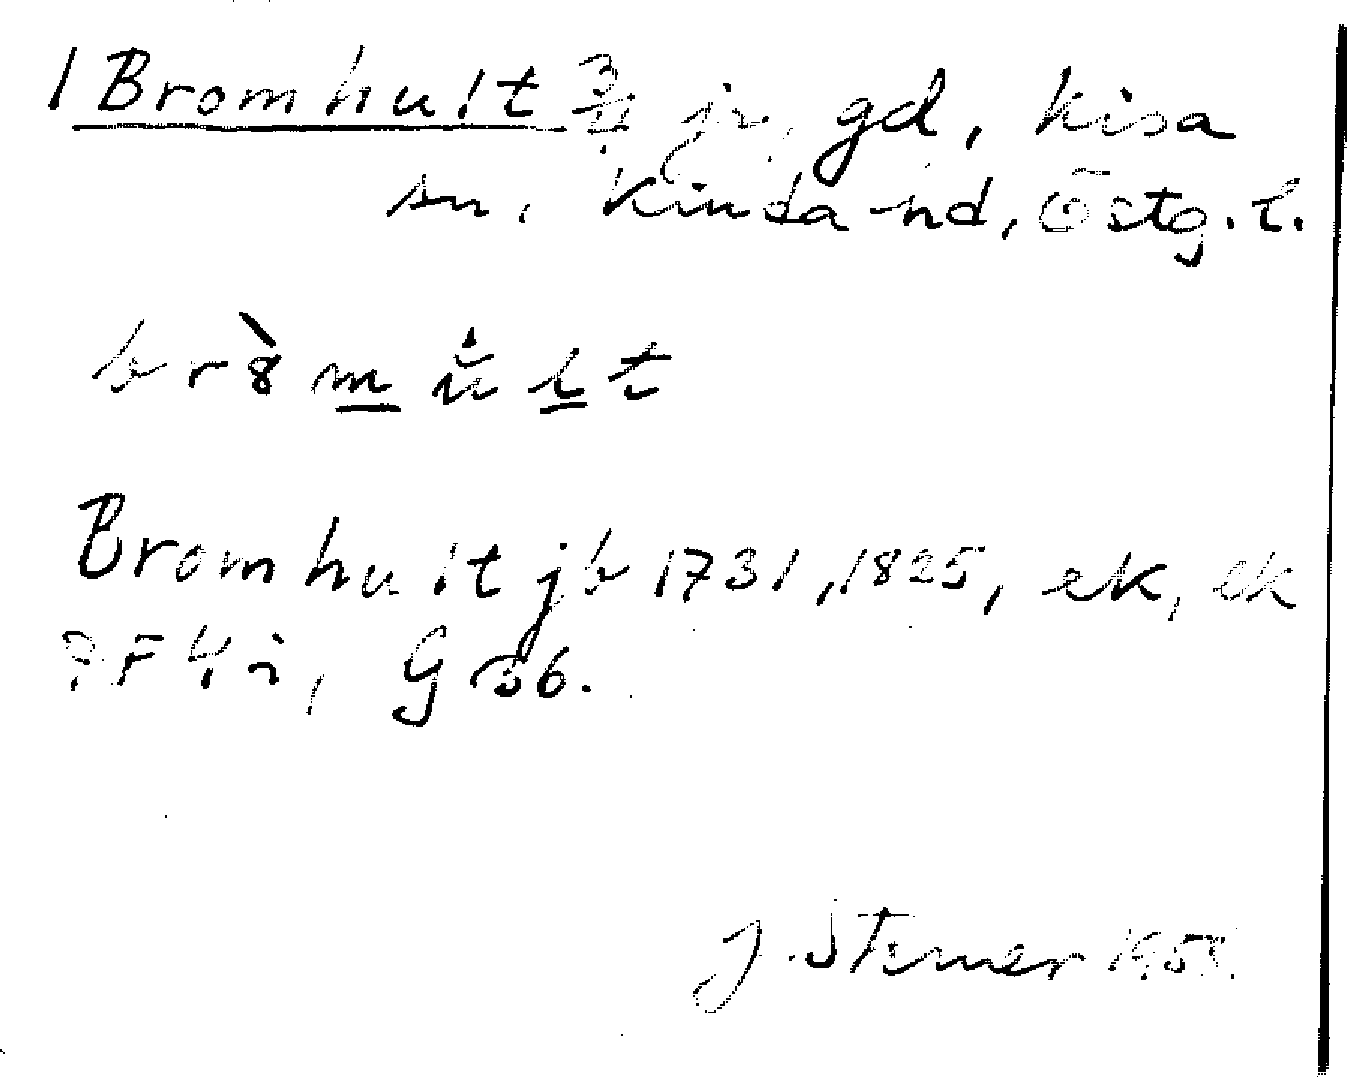 1 Bromhult 3/4 fr, gd, Kisa
sn, Kinda hd, Östg. l.
Bromhult jb 1731, 1825, ek, ek
RF 4 i, G 36.
J. Sterner 1958.